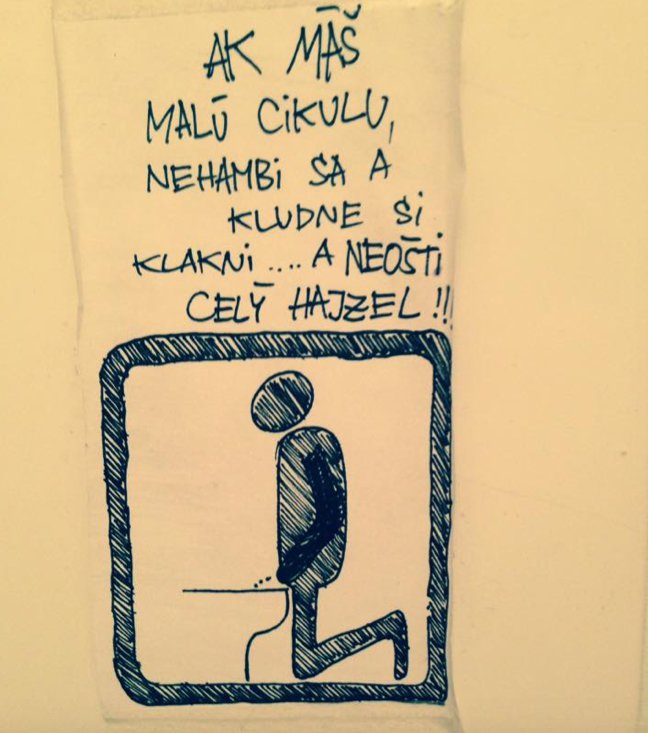 AK MÁŠ
MALÚ CIKULU,
NEHAMBI SA A
KLUDNE SI
KLAKNI .... A NEOŠTI
CELÝ HAJZEL !!!